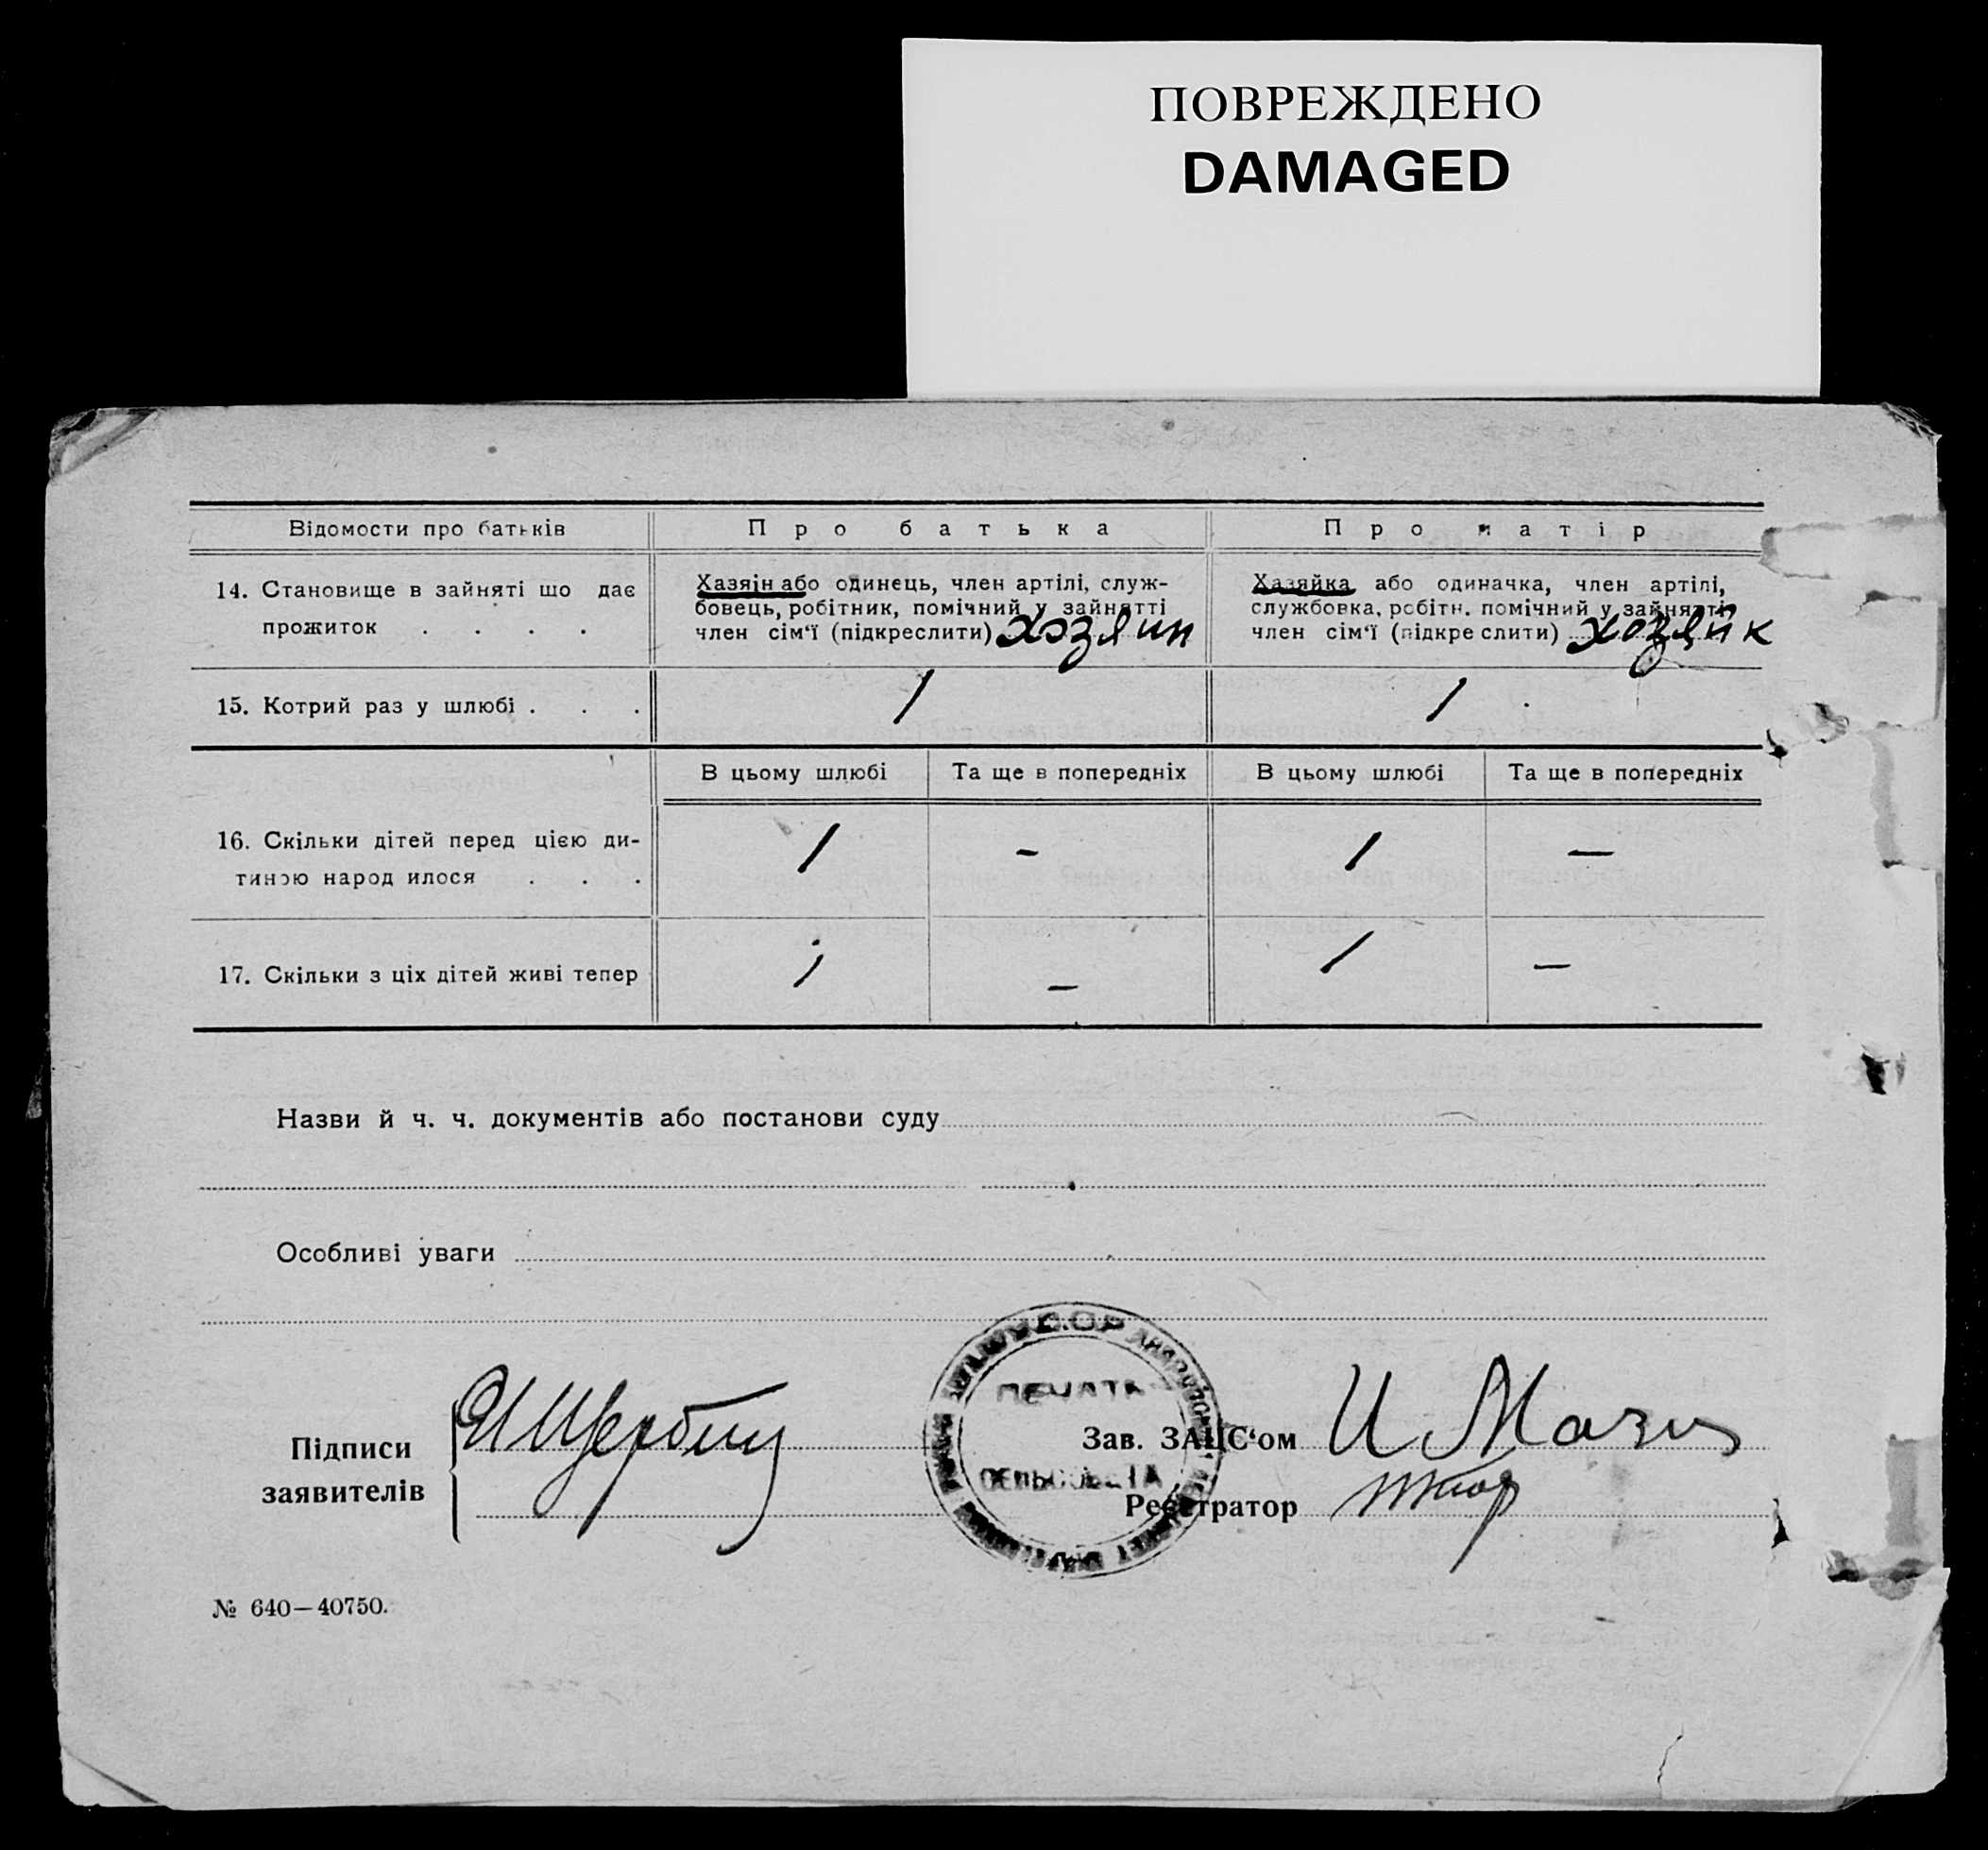 ПОВРЕЖДЕНО
DAMAGED
Відомости про батьків
Про батька
Про матір
14. Становище в зайняті шо дає
прожиток . . . .
Хазяін або одинець, член артілі, служ-
бовець, робітник, помічний у зайнятті
член сім‘ї (підкреслити) хозяин
Хазяйка або одиначка, член артілі,
службовка, робітн. помічний у зайнятті,
член сім‘ї (підкреслити) хозяйк
15. Котрий раз у шлюбі . . .
1
1
В цьому шлюбі
Та ще в попередніх
В цьому шлюбі
Та ще в попередніх
16. Скільки дітей перед цією ди-
тиною народилося . . .
1
-
1
—
17. Скільки з ціх дітей живі тепер
1
—
1
—
Назви й ч. ч. документів або постанови суду
Особливі уваги
Підписи
заявителів
Щербин
ПЕЧАТЬ
СЕЛЬСОВЕТА
Зав. ЗАЦС‘ом И Мази
Реєстратор
№ 640—40750.